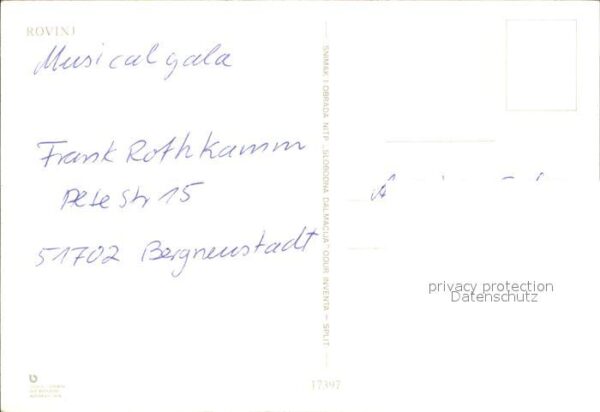 ROVINJ
Musical gala
Frank Rothkamm
51702 Bergneustadt
SNIMAK I OBRADA NITP „SLOBODNA DALMACIJA" OOUR INVENTA — SPLIT
17397
privacy protection
Datenschutz